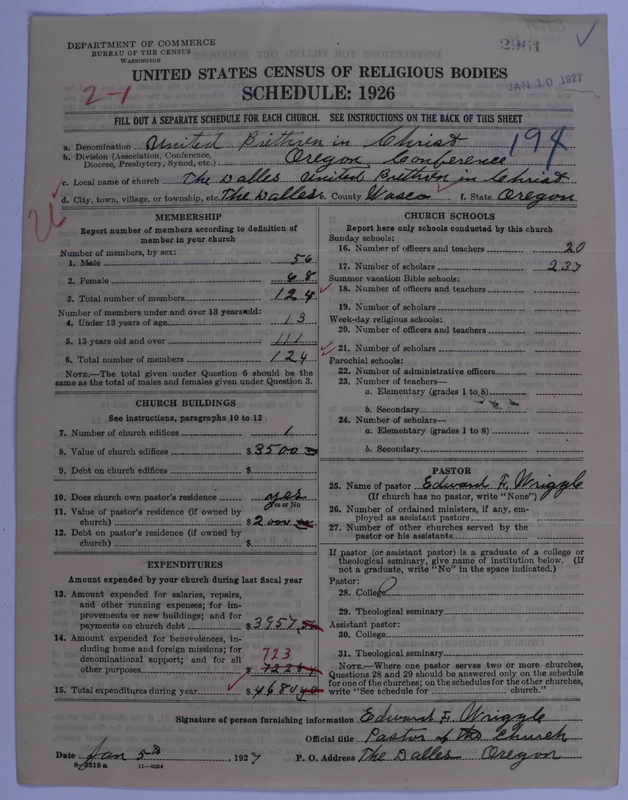 DEPARTMENT OF COMMERCE
BUREAU OF THE CENSUS
WASHINGTON
2961
JAN 10 1927
2-1
UNITED STATES CENSUS OF RELIGIOUS BODIES
SCHEDULE: 1926
FILL OUT A SEPARATE SCHEDULE FOR EACH CHURCH. SEE INSTRUCTIONS ON THE BACK OF THIS SHEET
194
a. Denomination United Brethren in Christ
b. Division (Association, Conference, Diocese, Presbytery, Synod, etc.) Oregon Conference
c. Local name of church The Dalles United Brethren in Christ
d. City, town, village, or township, etc. The Dalles e. County Wasco f. State Oregon
MEMBERSHIP
Report number of members according to definition of
member in your church
Number of members, by sex:
1. Male 56
2. Female 68
3. Total number of members 124
Number of members under and over 13 years old:
4. Under 13 years of age 13
5. 13 years old and over 111
6. Total number of members 124
NOTE.—The total given under Question 6 should be the
same as the total of males and females given under Question 3.
CHURCH BUILDINGS
See instructions, paragraphs 10 to 12
7. Number of church edifices 1
8. Value of church edifices $ 3500
9. Debt on church edifices $
10. Does church own pastor's residence yes
Yes or No
11. Value of pastor's residence (if owned by
church) $ 2000
12. Debt on pastor's residence (if owned by
church) $
EXPENDITURES
Amount expended by your church during last fiscal year
13. Amount expended for salaries, repairs,
and other running expenses; for im-
provements or new buildings; and for
payments on church debt $ 3957
14. Amount expended for benevolences, in-
cluding home and foreign missions; for
denominational support; and for all
723
other purposes $
15. Total expenditures during year $ 4680
CHURCH SCHOOLS
Report here only schools conducted by this church
Sunday schools:
16. Number of officers and teachers 20
17. Number of scholars 237
Summer vacation Bible schools:
18. Number of officers and teachers
19. Number of scholars
Week-day religious schools:
20. Number of officers and teachers
21. Number of scholars
Parochial schools:
22. Number of administrative officers
23. Number of teachers—
a. Elementary (grades 1 to 8)
b. Secondary
24. Number of scholars—
a. Elementary (grades 1 to 8)
b. Secondary
PASTOR
25. Name of pastor Edward F. Wriggle
(If church has no pastor, write "None")
26. Number of ordained ministers, if any, em-
ployed as assistant pastors
27. Number of other churches served by the
pastor or his assistants
If pastor (or assistant pastor) is a graduate of a college or
theological seminary, give name of institution below. (If
not a graduate, write "No" in the space indicated.)
Pastor:
28. College
29. Theological seminary
Assistant pastor:
30. College
31. Theological seminary
NOTE.—Where one pastor serves two or more churches,
Questions 28 and 29 should be answered only on the schedule
for one of the churches; on the schedules for the other churches,
write "See schedule for church."
Signature of person furnishing information Edward F. Wriggle
Official title Pastor of the Church
Date Jan 5th, 1927 P. O. Address The Dalles Oregon
8-3518 a 11-9054